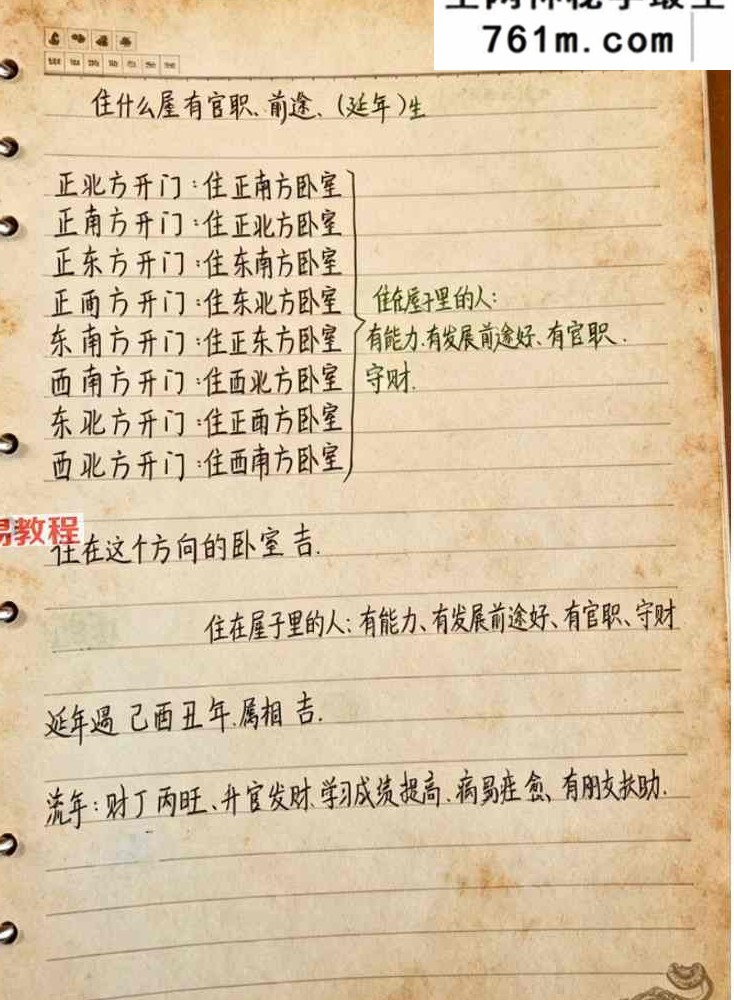 761m.com
住什么屋有官职、前途、(延年)生
正北方开门:住正南方卧室
正南方开门:住正北方卧室
正东方开门:住东南方卧室
正西方开门:住东北方卧室
住在屋子里的人:
东南方开门:住正东方卧室
有能力.有发展前途好、有官职.
西南方开门:住西北方卧室
守财.
东北方开门:住正西方卧室
西北方开门:住西南方卧室
易教程
住在这个方向的卧室 吉.
住在屋子里的人:有能力、有发展前途好、有官职、守财
延年遇 己酉丑年.属相 吉.
流年:财丁丙旺、升官发财.学习成绩提高.病易痊愈、有朋友扶助.